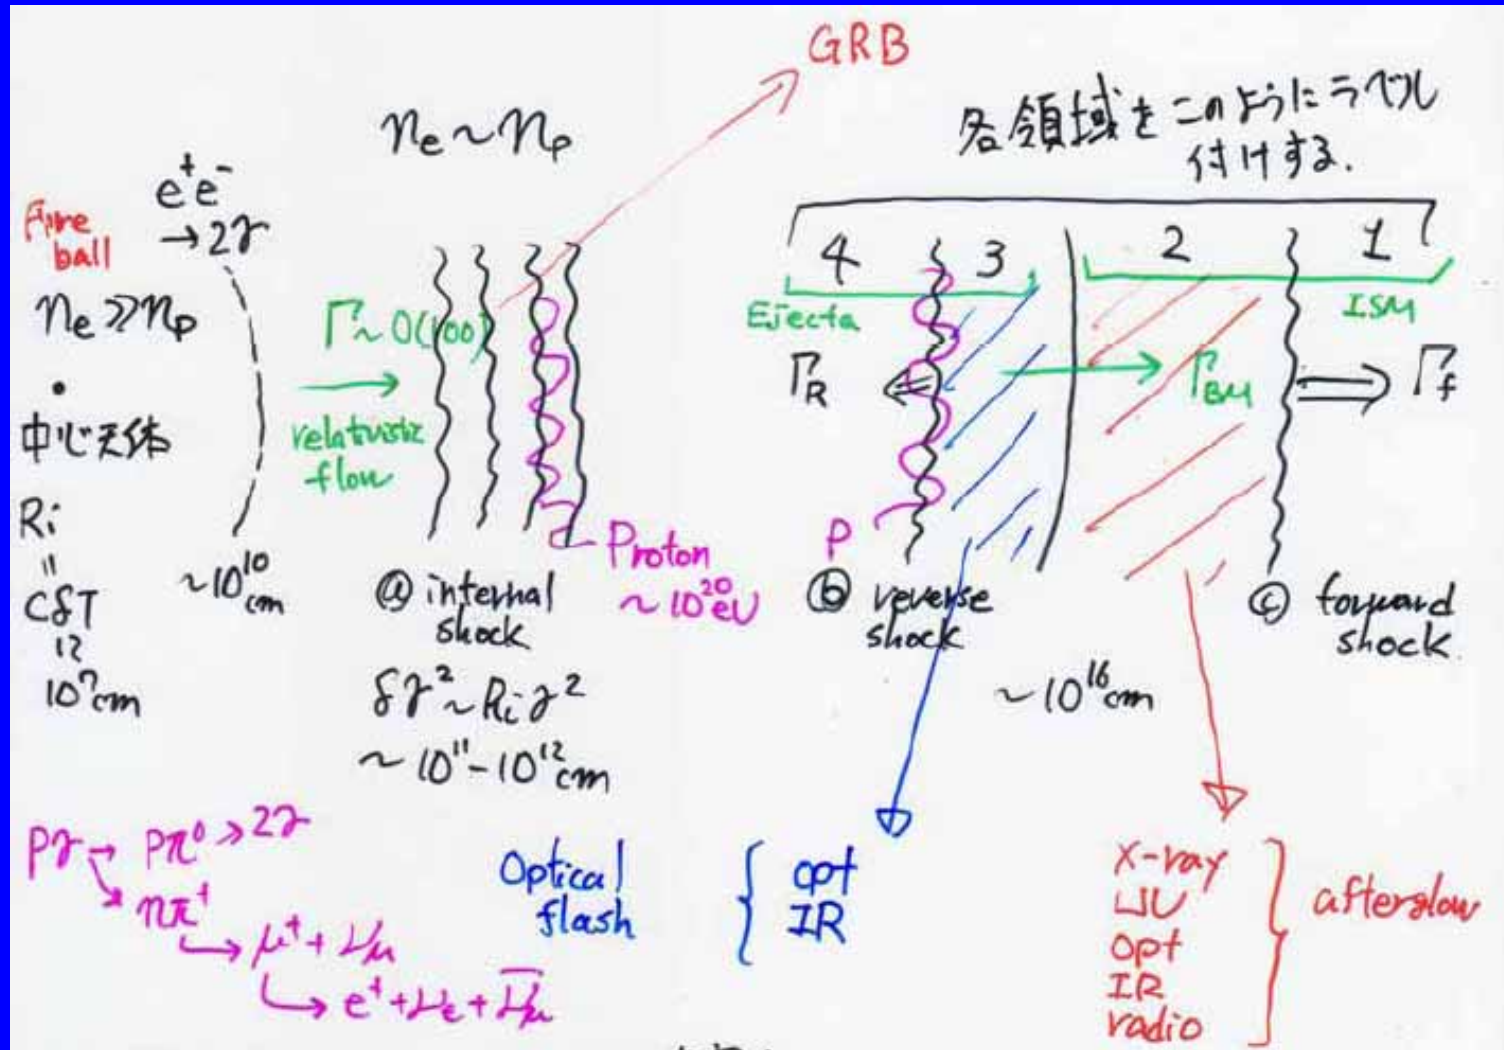 GRB
各領域をこのようにラベル
付けする.
n_e ~ n_p
e⁺e⁻
→ 2γ
Fire
ball
n_e ≫ n_p
中心天体
Ri
"
cδT
≀≀
10⁷cm
~10¹⁰
cm
Γ ~ O(100)
relativistic
flow
ⓐ internal
shock
δγ² ~ Riγ²
~ 10¹¹-10¹²cm
Proton
~ 10²⁰eV
4 3 2 1
Ejecta
ISM
Γ_R
Γ_BM
Γ_f
P
ⓑ reverse
shock
ⓒ forward
shock.
~10¹⁶cm
Pγ → Pπ⁰ ≫ 2γ
↘ nπ⁺
↳ μ⁺ + ν_μ
↳ e⁺ + ν_e + ν̅_μ
Optical
flash
opt
IR
X-ray
UV
opt
IR
radio
afterglow